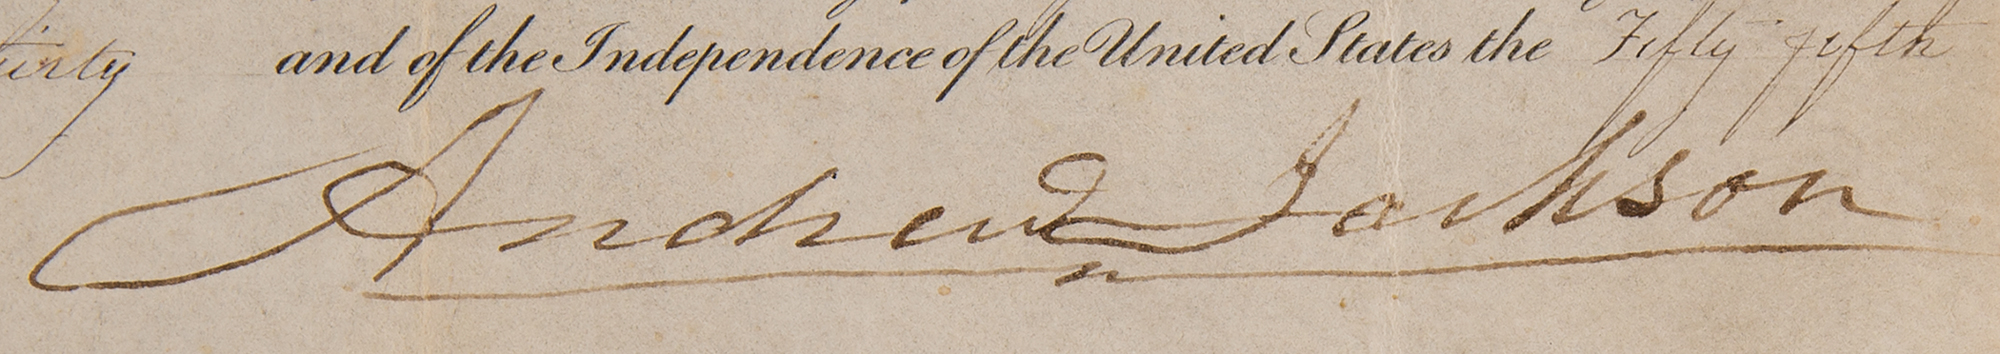 thirty and of the Independence of the United States the Fifty fifth
Andrew Jackson